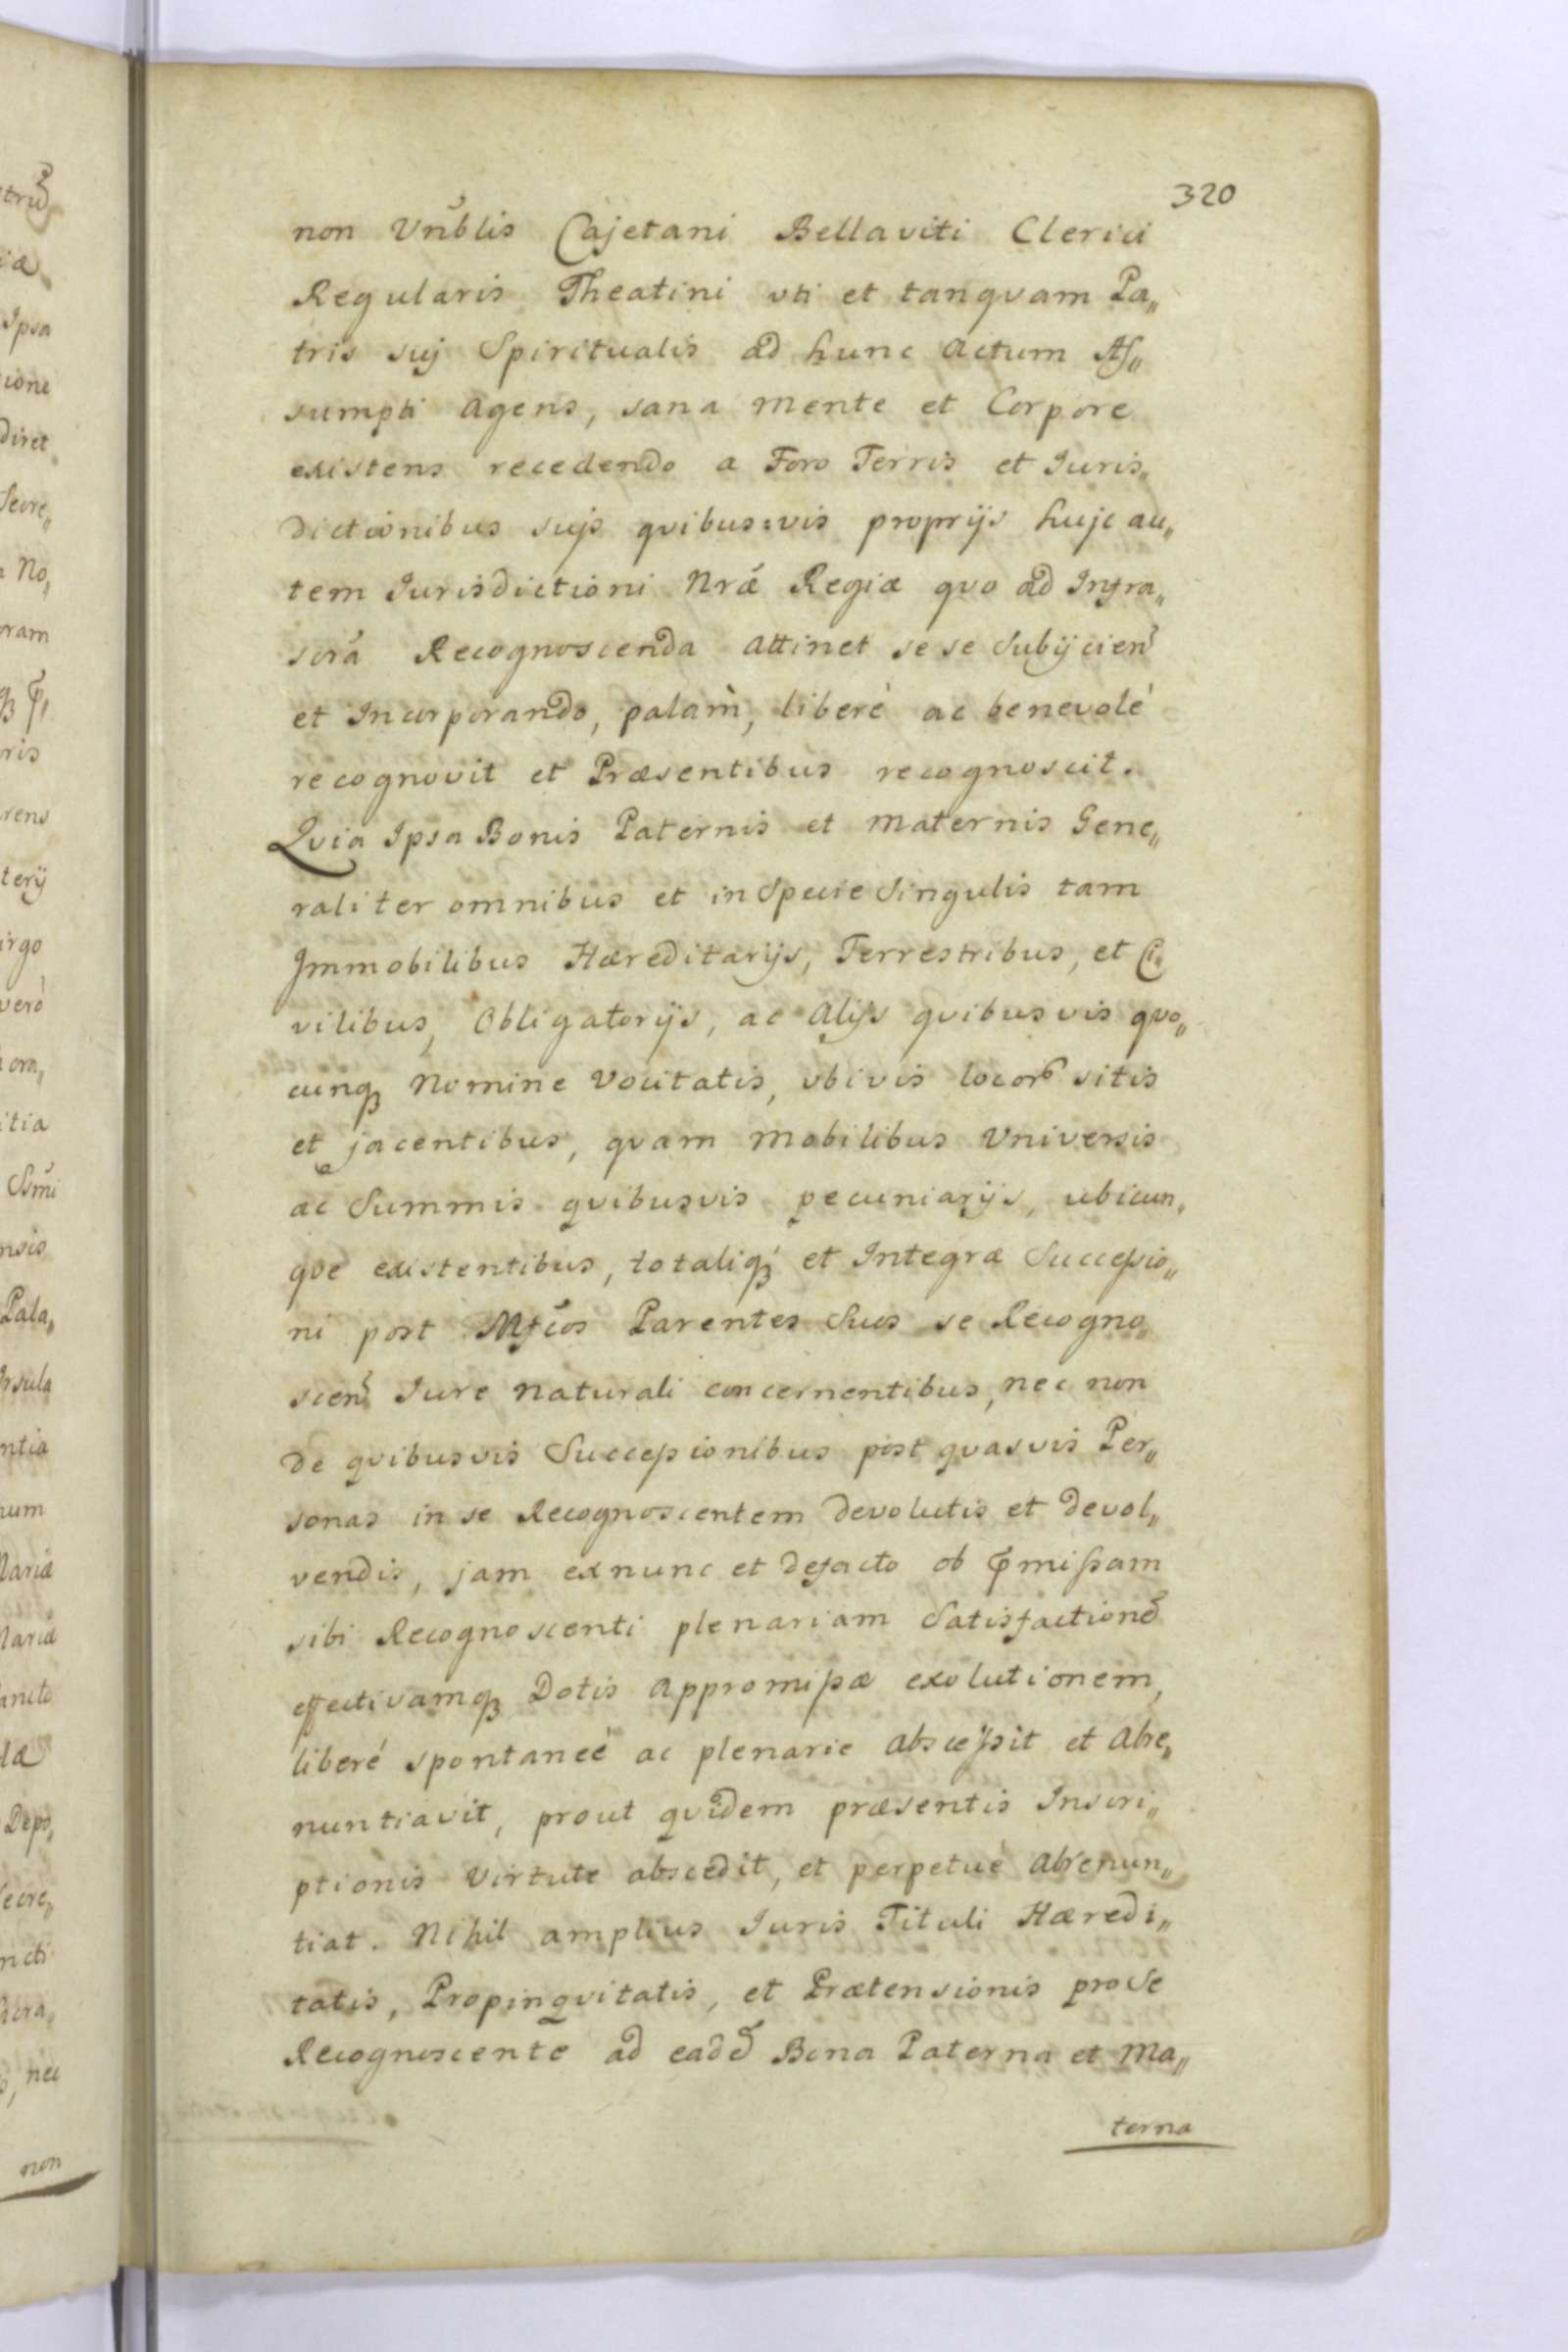 320
non Vnblis Cajetani Bellaviti Clerici
Regularis Theatini vti et tanqvam Pa„
tris suj Spiritualis ad hunc actum Aſ„
sumpti agens, sana mente et Corpore
existens recedendo a Foro Terris et Juris„
dictionibus sujs qvibus:vis proprijs hujc au„
tem Jurisdictioni Nræ Regiæ qvo ad Infra„
scrã Recognoscenda attinet sese Subijcien̄
et Incorporando, palam̀, liberè ac benevolé
recognovit et Præsentibus recognoscit.
Qvia Ipsa Bonis Paternis et maternis Gene„
raliter omnibus et in Specie Singulis tam
Immobilibus Hæreditarijs, Terrestribus, et Ci„
vilibus, Obligatorijs, ac Alijs qvibusvis qvo„
cunqꝫ Nomine Vocitatis, vbivis locorũ sitis
et jacentibus, qvam mobilibus Vniversis
ac Summis qvibusvis pecuniarijs, ubicun„
qve existentibus, totaliqꝫ et Integræ Succeſsio„
ni post Mfcos Parentes Suos se Recogno„
scen̄ Jure naturali concernentibus, nec non
de qvibusvis Succeſsionibus post qvasvis Per„
sonas in se Recognoscentem devolutis et devol„
vendis, jam exnunc et defacto ob p̄miſsam
sibi Recognoscenti plenariam Satisfactionẽ
effectivamqꝫ Dotis appromiſsæ exolutionem,
liberé spontaneè ac plenarie absceſsit et abre„
nuntiavit, prout qvidem præsentis Inscri„
ptionis Virtute abscedit, et perpetuè abrenun„
tiat. Nihil amplius Juris Tituli Hæredi„
tatis, Propinqvitatis, et Prætensionis pro Se
Recognoscente ad eadẽ Bona Paterna et Ma„
terna
non